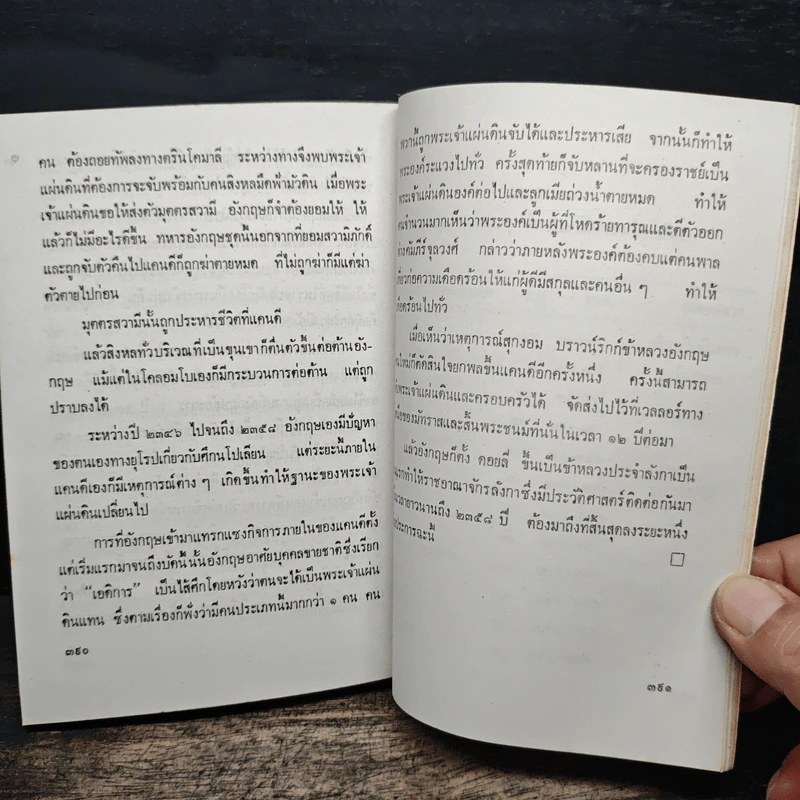 คน ต้องถอยทัพลงทางตรินโคมาลี ระหว่างทางจึงพบพระเจ้า
แผ่นดินที่ต้องการจะจับพร้อมกับคนสิงหลมืดฟ้ามัวดิน เมื่อพระ
เจ้าแผ่นดินขอให้ส่งตัวมุตตรสวามี อังกฤษก็จำต้องยอมให้ ให้
แล้วก็ไม่มีอะไรดีขึ้น ทหารอังกฤษชุดนั้นนอกจากที่ยอมสวามิภักดิ์
และถูกจับตัวคืนไปแคนดีก็ถูกฆ่าตายหมด ที่ไม่ถูกฆ่าก็มีแต่ฆ่า
ตัวตายไปก่อน
มุตตรสวามีนั้นถูกประหารชีวิตที่แคนดี
แล้วสิงหลทั่วบริเวณที่เป็นขุนเขาก็ตื่นตัวขึ้นต่อต้านอัง-
กฤษ แม้แต่ในโคลอมโบเองก็มีกระบวนการต่อต้าน แต่ถูก
ปราบลงได้
ระหว่างปี ๒๓๔๖ ไปจนถึง ๒๓๕๘ อังกฤษเองมีปัญหา
ของตนเองทางยุโรปเกี่ยวกับศึกนโปเลียน แต่ระยะนี้ภายใน
แคนดีเองก็มีเหตุการณ์ต่าง ๆ เกิดขึ้นทำให้ฐานะของพระเจ้า
แผ่นดินเปลี่ยนไป
การที่อังกฤษเข้ามาแทรกแซงกิจการภายในของแคนดีตั้ง
แต่เริ่มแรกมาจนถึงบัดนี้นั้นอังกฤษอาศัยบุคคลขายชาติซึ่งเรียก
ว่า “เอดิการ” เป็นไส้ศึกโดยหวังว่าตนจะได้เป็นพระเจ้าแผ่น
ดินแทน ซึ่งตามเรื่องก็ฟังว่ามีคนประเภทนี้มากกว่า ๑ คน คน
๓๙๐
ถูกพระเจ้าแผ่นดินจับได้และประหารเสีย จากนั้นก็ทำให้
พระองค์ระแวงไปทั่ว ครั้งสุดท้ายก็จับหลานที่จะครองราชย์เป็น
พระเจ้าแผ่นดินองค์ต่อไปและลูกเมียถ่วงน้ำตายหมด ทำให้
คนจำนวนมากเห็นว่าพระองค์เป็นผู้ที่โหดร้ายทารุณและตีตัวออก
คัมภีร์จุลวงศ์ กล่าวว่าภายหลังพระองค์ต้องคบแต่คนพาล
ก่อความเดือดร้อนให้แก่ผู้ดีมีสกุลและคนอื่น ๆ ทำให้
เดือดร้อนไปทั่ว
เมื่อเห็นว่าเหตุการณ์สุกงอม บราวน์ริกก์ข้าหลวงอังกฤษ
ก็ตัดสินใจยกพลขึ้นแคนดีอีกครั้งหนึ่ง ครั้งนี้สามารถ
พระเจ้าแผ่นดินและครอบครัวได้ จัดส่งไปไว้ที่เวลลอร์ทาง
ของมัทราสและสิ้นพระชนม์ที่นั่นในเวลา ๑๒ ปีต่อมา
แล้วอังกฤษก็ตั้ง ดอยลี่ ขึ้นเป็นข้าหลวงประจำลังกาเป็น
ทำให้ราชอาณาจักรลังกาซึ่งมีประวัติศาสตร์ติดต่อกันมา
ยาวนานถึง ๒๓๕๘ ปี ต้องมาถึงที่สิ้นสุดลงระยะหนึ่ง
ประการฉะนี้
๓๙๑